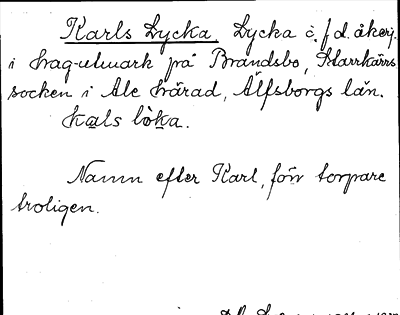 Karls Lycka Lycka å f d. åkerj.
i hag-utmark på Brandsbo, Starrkärrs
socken i Ale härad, Älfsborgs län.
kals lòka.
Namn efter Karl, förr torpare
troligen.